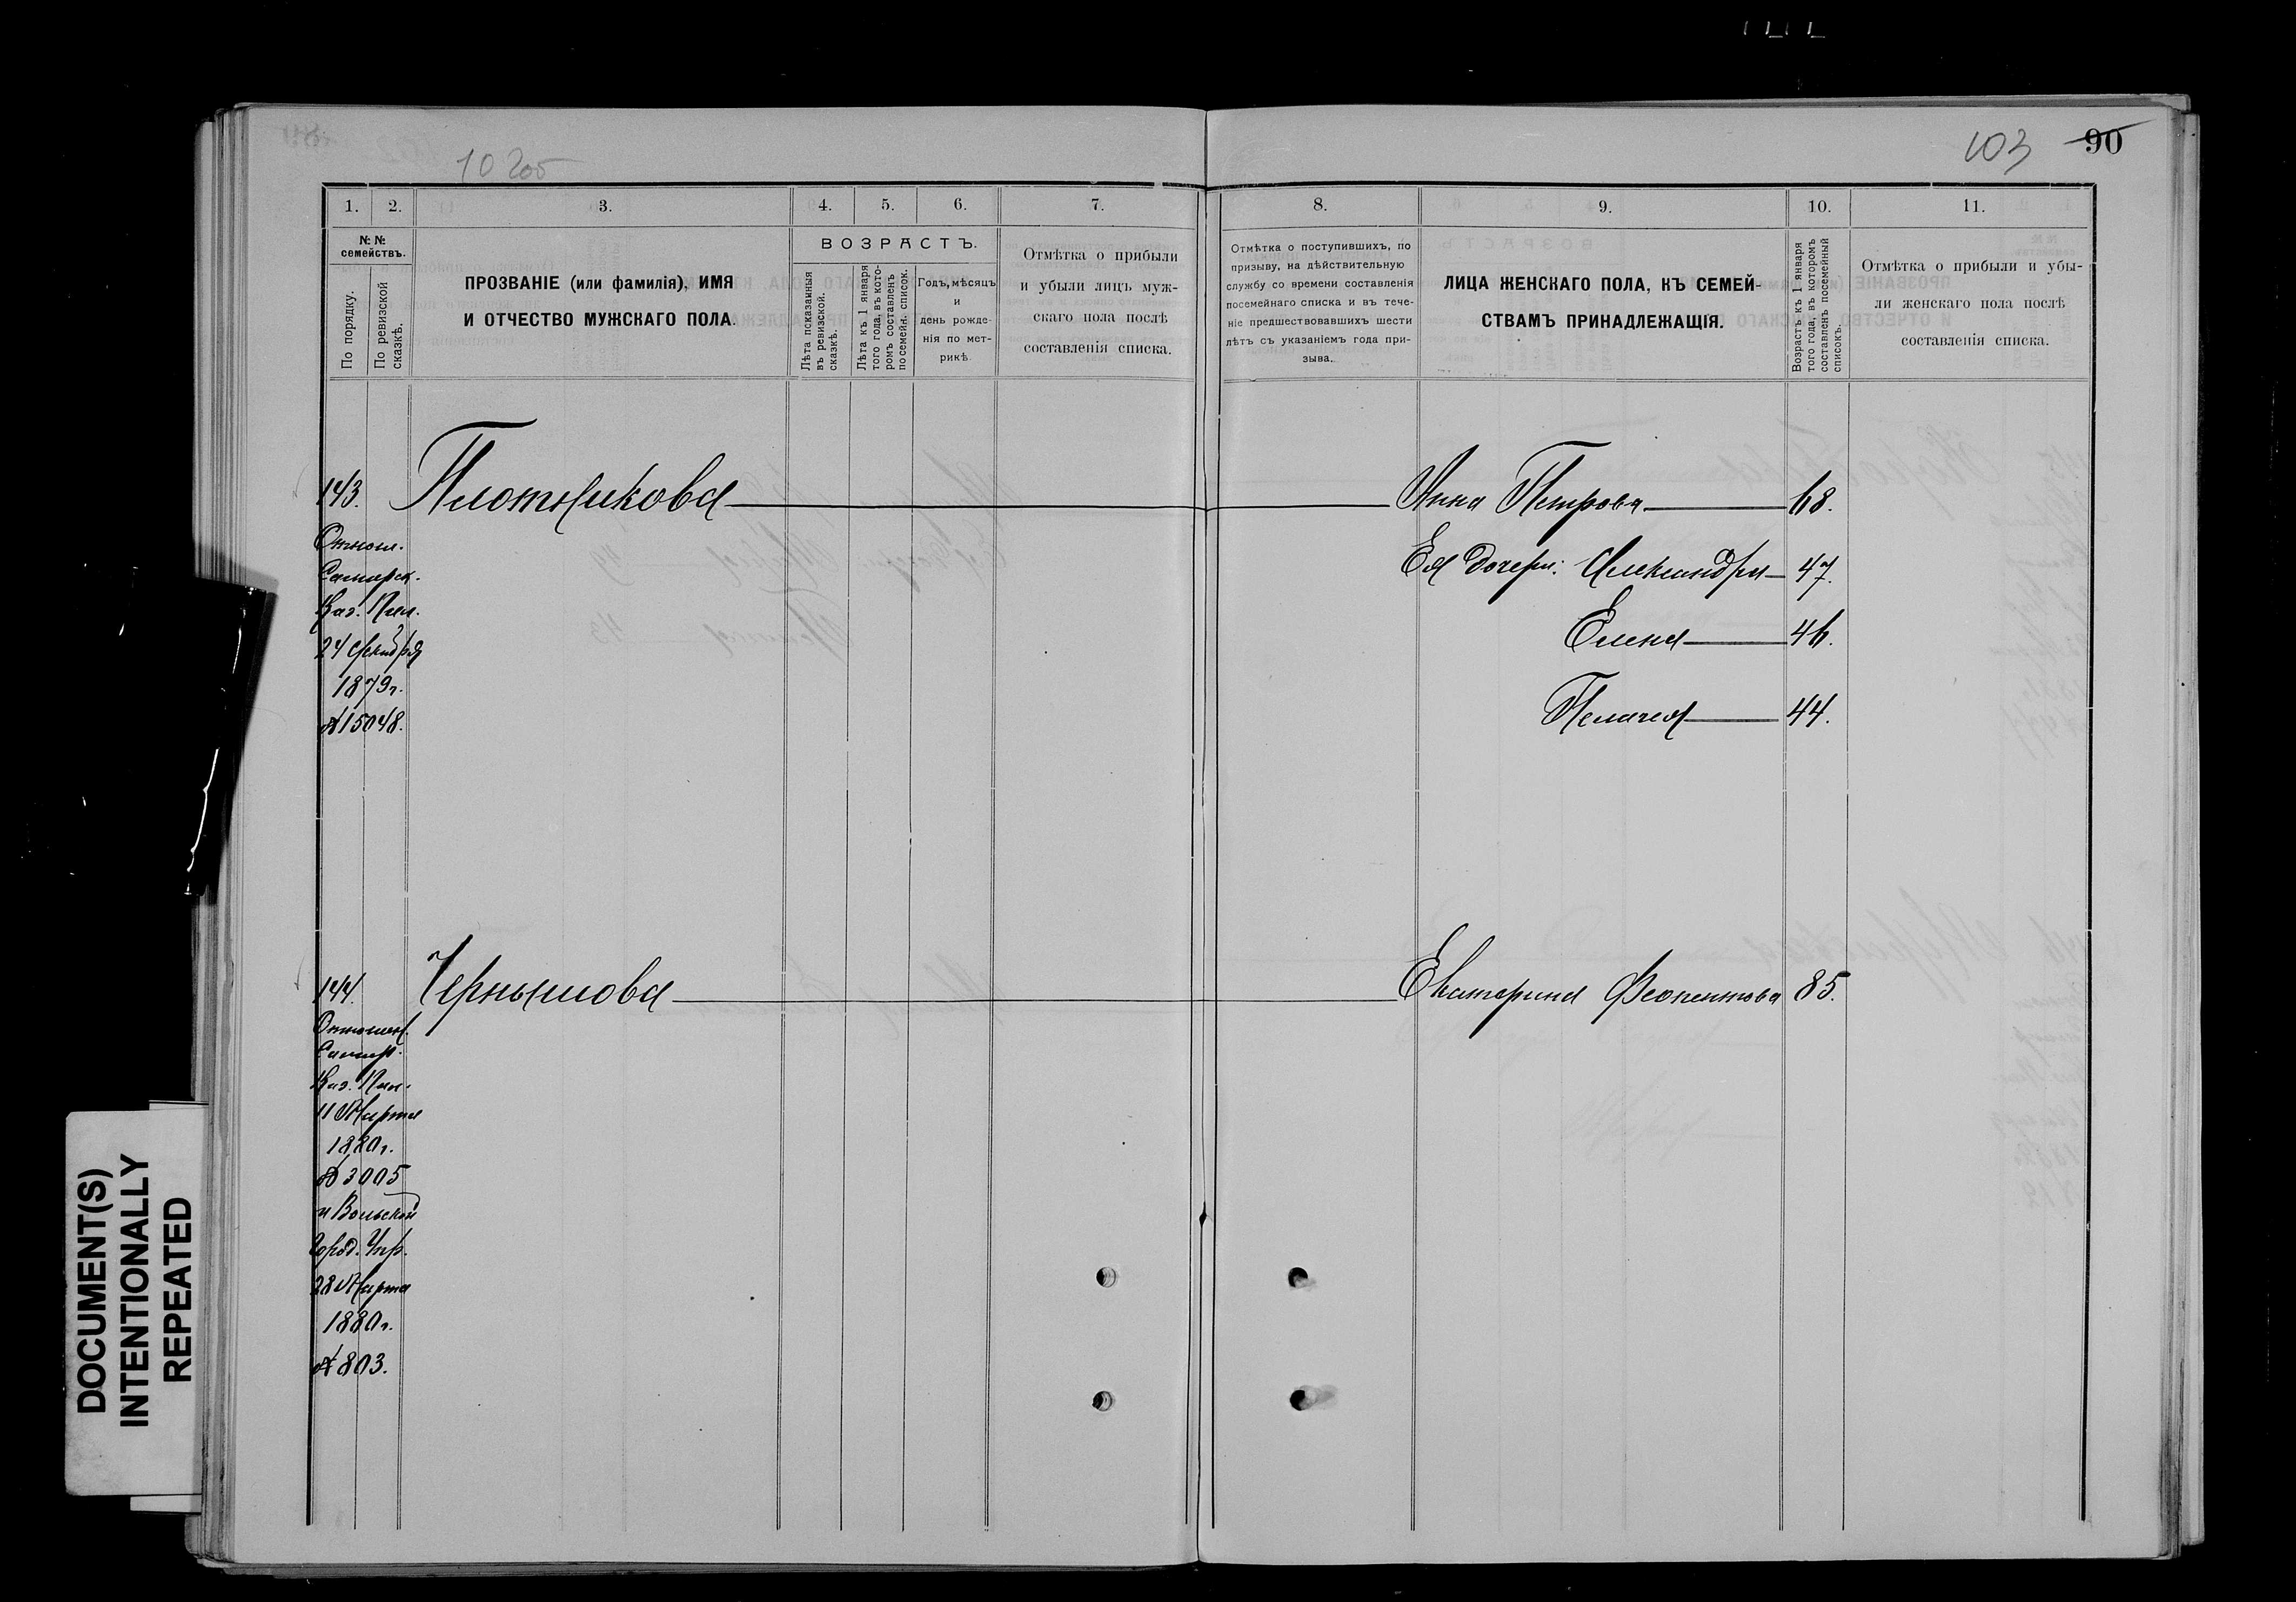 103 90
1. 2. 3. 4. 5. 6. 7. 8. 9. 10. 11.
№ №
семействъ.
По порядку.
По ревизской
сказкѣ.
ПРОЗВАНІЕ (или фамилія), ИМЯ
И ОТЧЕСТВО МУЖСКАГО ПОЛА.
ВОЗРАСТЪ.
Лѣта показанныя
въ ревизской.
сказкѣ.
Лѣта къ 1 января
того года, въ кото-
ромъ составленъ
посемейн. список.
Годъ, мѣсяцъ
и
день рожде-
нія по мет-
рикѣ
Отмѣтка о прибыли
и убыли лицъ муж-
скаго пола послѣ
составленія списка.
Отмѣтка о поступившихъ, по
призыву, на дѣйствительную
службу со времени составленія
посемейнаго списка и въ тече-
ніе предшествовавшихъ шести
лѣтъ съ указаніемъ года при-
зыва.
ЛИЦА ЖЕНСКАГО ПОЛА, КЪ СЕМЕЙ-
СТВАМЪ ПРИНАДЛЕЖАЩІЯ.
Возрастъ къ 1 января
того года, въ которомъ
составленъ посемейный
списокъ.
Отмѣтка о прибыли и убы-
ли женскаго пола послѣ
составленія списка.
143. Плотникова Анна Петрова 68.
Отнош.
Самарск.
Каз. Пал.
24 1879г.
№ 15048.
Ея дочери: Александра 47.
Елена 46.
Пелагея 44.
144. Чернышова Екатерина Феопентова 85.
Отношен.
Самар.
Каз. Пал.
11 Марта
1880г.
№ 3005
и Вольской
Город. Упр.
28 Марта
1880г.
№ 803.
DOCUMENT(S)
INTENTIONALLY
REPEATED